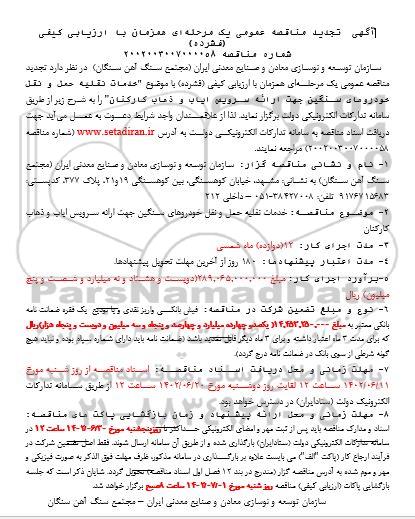 آگهی تجدید مناقصه عمومی یک مرحله‌ای همزمان با ارزیابی کیفی
(فشرده)
شماره مناقصه ۲۰۰۲۰۰۳۰۰۷۰۰۰۰۵۸
سازمان توسعه و نوسازی معادن و صنایع معدنی ایران (مجتمع سنگ آهن سنگان) در نظر دارد تجدید
مناقصه عمومی یک مرحله‌ای همزمان با ارزیابی کیفی (فشرده) با موضوع "خدمات نقلیه حمل و نقل
خودروهای سنگین جهت ارائه سرویس ایاب و ذهاب کارکنان" را به شرح زیر از طریق
سامانه تدارکات الکترونیکی دولت برگزار نماید. لذا از علاقمندان واجد شرایط دعوت به عمل می‌آید جهت
دریافت اسناد مناقصه به سامانه تدارکات الکترونیکی دولت به آدرس www.setadiran.ir (شماره مناقصه
۲۰۰۲۰۰۳۰۰۷۰۰۰۰۵۸) مراجعه نمایند.
۱- نام و نشانی مناقصه گزار: سازمان توسعه و نوسازی معادن و صنایع معدنی ایران (مجتمع
سنگ آهن سنگان) به نشانی: مشهد، خیابان کوهسنگی، بین کوهسنگی ۱۹و۲۱، پلاک ۳۷۷، کدپستی:
۹۱۷۶۷۱۵۶۸۳ تلفن: ۳۸۴۲۷۰۰۸-۰۵۱ داخلی ۲۱۲
۲- موضوع مناقصه: خدمات نقلیه حمل و نقل خودروهای سنگین جهت ارائه سرویس ایاب و ذهاب
کارکنان
۳- مدت اجرای کار: ۱۲(دوازده) ماه شمسی
۴- مدت اعتبار پیشنهادها: ۱۸۰ روز از آخرین مهلت تحویل پیشنهادها.
۵- برآورد اجرای کار: مبلغ ۲۸۹,۰۶۵,۰۰۰,۰۰۰(دویست و هشتاد و نه میلیارد و شصت و پنج
میلیون) ریال
۶- نوع و مبلغ تضمین شرکت در مناقصه: فیش بانکی واریز نقدی و یا یک فقره ضمانت نامه
بانکی معتبر به مبلغ ۱۴,۴۵۳,۲۵۰,۰۰۰ (چهارده میلیارد و چهارصد و پنجاه و سه میلیون و دویست و پنجاه هزار)ریال
که برای مدت ۳ ماه اعتبار داشته و برای ۳ ماه دیگر قابل تمدید باشد (ضمانت نامه باید دارای شماره سپام بوده و نباید هیچ
گونه شرطی از سوی بانک در ضمانت نامه درج گردد).
۷- مهلت زمانی و محل دریافت اسناد مناقصه: اسناد مناقصه از روز شنبه مورخ
۱۴۰۲/۰۶/۱۱ ساعت ۱۲ لغایت روز دوشنبه مورخ ۱۴۰۲/۰۶/۲۰ ساعت ۱۲ از طریق سامانه تدارکات
الکترونیک دولت (ستادایران) در دسترس خواهد بود.
۸- مهلت زمانی و محل ارائه پیشنهاد و زمان بازگشایی پاکت های مناقصه:
اسناد و مدارک مناقصه باید پس از ثبت مهر و امضای الکترونیکی حداکثر تا روز پنجشنبه مورخ ۱۴۰۲/۰۶/۳۰ ساعت ۱۲ در
سامانه تدارکات الکترونیکی دولت (ستادایران) بارگذاری شده و از طریق آن سامانه ارسال شوند. فقط اصل تضمین شرکت در
فرآیند ارجاع کار (پاکت "الف") می بایست علاوه بر بارگذاری در سامانه مذکور، ظرف مهلت فوق الذکر به صورت فیزیکی و
مهر و موم شده به آدرس مناقصه گزار (مندرج در بند ۱۲ فصل اول اسناد مناقصه) تحویل گردد. شایان ذکر است که جلسه
بازگشایی پاکات (ارزیابی کیفی) مناقصه روز شنبه مورخ ۱۴۰۲/۰۷/۰۱ ساعت ۸صبح برگزار خواهد شد.
سازمان توسعه و نوسازی معادن و صنایع معدنی ایران – مجتمع سنگ آهن سنگان